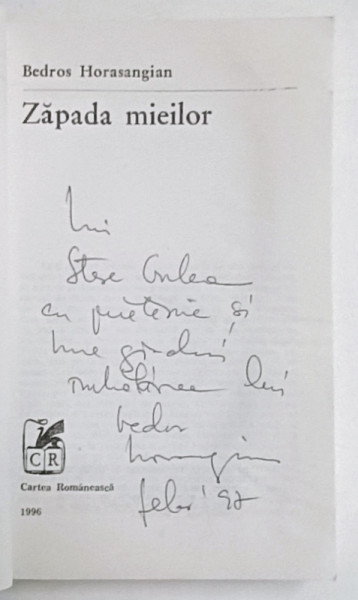 Bedros Horasangian
Zăpada mieilor
Lui
Stere Gulea
cu prietenie și
bune gânduri,
lui
bedros
horasangian
febr' 97
C R
Cartea Românească
1996